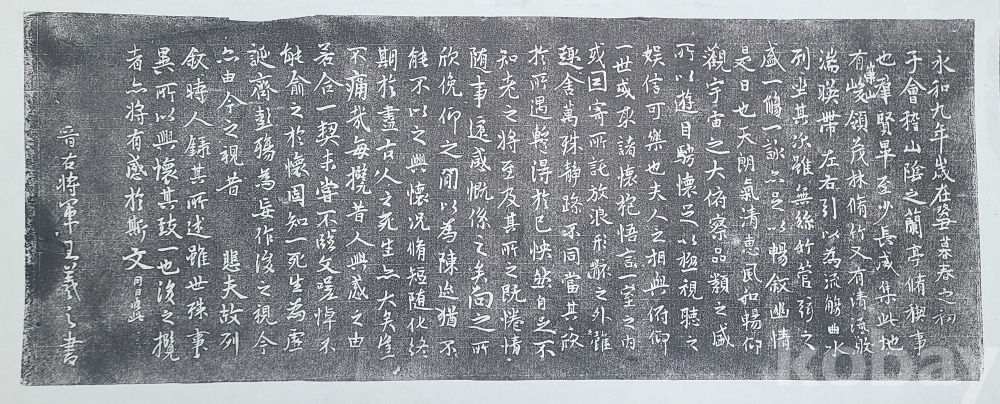 永和九年歲在癸丑暮春之初
子會稽山陰之蘭亭脩禊事
也羣賢畢至少長咸集此地
有峻領茂林脩竹又有清流激
崇山
湍暎帶左右引以為流觴曲水
列坐其次雖無絲竹管弦之
盛一觴一詠亦足以暢敘幽情
是日也天朗氣清惠風和暢仰
觀宇宙之大俯察品類之盛
所以遊目騁懷足以極視聽之
娛信可樂也夫人之相與俯仰
一世或取諸懷抱悟言一室之內
或因寄所託放浪形骸之外雖
趣舍萬殊靜躁不同當其欣
於所遇暫得於己怏然自足不
知老之將至及其所之既惓情
隨事遷感慨係之矣向之所
欣俛仰之閒以為陳迹猶不
能不以之興懷況脩短隨化終
期於盡古人云死生亦大矣豈
不痛哉每攬昔人興感之由
若合一契未嘗不臨文嗟悼不
能喻之於懷固知一死生為虛
誕齊彭殤為妄作後之視今
亦由今之視昔 悲夫故列
敘時人錄其所述雖世殊事
異所以興懷其致一也後之攬
者亦將有感於斯文
晉右將軍王羲之書
kobay